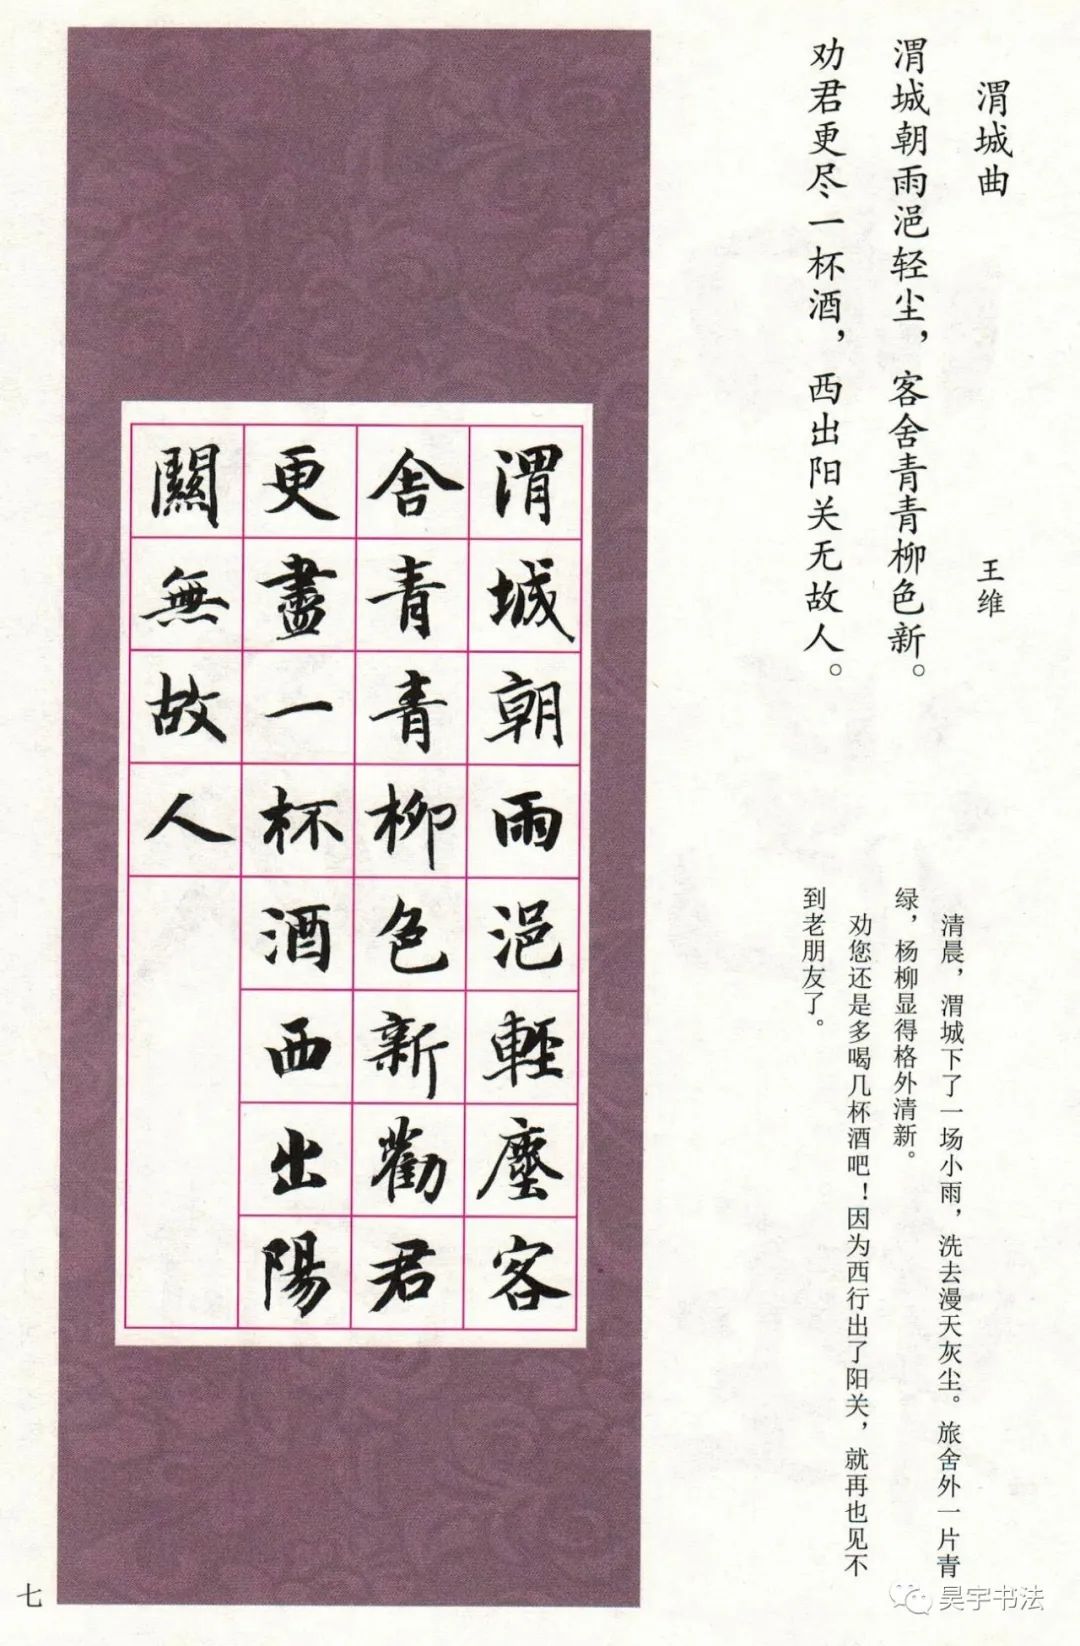 渭城曲
王维
渭城朝雨浥轻尘，客舍青青柳色新。
劝君更尽一杯酒，西出阳关无故人。
清晨，渭城下了一场小雨，洗去漫天灰尘。旅舍外一片青
绿，杨柳显得格外清新。
劝您还是多喝几杯酒吧！因为西行出了阳关，就再也见不
到老朋友了。
渭城朝雨浥輕塵客
舍青青柳色新勸君
更盡一杯酒西出陽
關無故人
七
昊宇书法